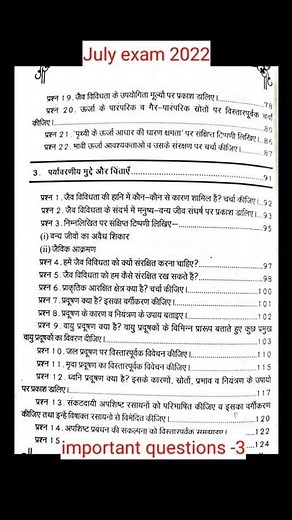 July exam 2022
प्रश्न 19. जैव विविधता के उपयोगिता मूल्यों पर प्रकाश डालिए। 78
प्रश्न 20. ऊर्जा के पारंपरिक व गैर-पारंपरिक स्रोतों पर विस्तारपूर्वक चर्चा
कीजिए। 80
प्रश्न 21. 'पृथ्वी के ऊर्जा आधार की धारण क्षमता' पर संक्षिप्त टिप्पणी लिखिए। 86
प्रश्न 22. भावी ऊर्जा आवश्यकताओं व उसके संरक्षण पर चर्चा कीजिए। 87
3. पर्यावरणीय मुद्दे और चिंताएँ 91
प्रश्न 1. जैव विविधता की हानि में कौन-कौन से कारण शामिल है? चर्चा कीजिए। 92
प्रश्न 2. जैव विविधता के संदर्भ में मनुष्य-वन्य जीव संघर्ष पर प्रकाश डालिए। 93
प्रश्न 3. निम्नलिखित पर संक्षिप्त टिप्पणी लिखिए- 95
(i) वन्य जीवों का अवैध शिकार
(ii) जैविक आक्रमण
प्रश्न 4. हमे जैव विविधता को क्यों संरक्षित करना चाहिए? 97
प्रश्न 5. जैव विविधता को हम कैसे संरक्षित रख सकते हैं? 98
प्रश्न 6. प्राकृतिक आरक्षित क्षेत्र क्या है? चर्चा कीजिए। 100
प्रश्न 7. प्रदूषण क्या है? इसका वर्गीकरण कीजिए। 101
प्रश्न 8. प्रदूषण के कारण व नियंत्रण के उपाय बताइए। 102
प्रश्न 9. वायु प्रदूषण क्या है? वायु प्रदूषकों के विभिन्न प्रारूप बताते हुए कुछ प्रमुख
वायु प्रदूषकों का विवरण दीजिए। 103
प्रश्न 10. जल प्रदूषण पर विस्तारपूर्वक विवेचन कीजिए। 110
प्रश्न 11. मृदा प्रदूषण का विस्तारपूर्वक विवेचन कीजिए। 115
प्रश्न 12. ध्वनि प्रदूषण क्या है? इसके कारणों, स्रोतों, प्रभाव व नियंत्रण के उपायों
पर प्रकाश डालिए। 117
प्रश्न 13. संकटदायी अपशिष्ट रसायनों को परिभाषित कीजिए व इसका वर्गीकरण
कीजिए तथा इन्हें विषाक्त रसायनों से विभेदित कीजिए। 120
प्रश्न 14. अपशिष्ट प्रबंधन की संकल्पना को विस्तारपूर्वक समझाइए। 122
प्रश्न 15 124
important questions -3